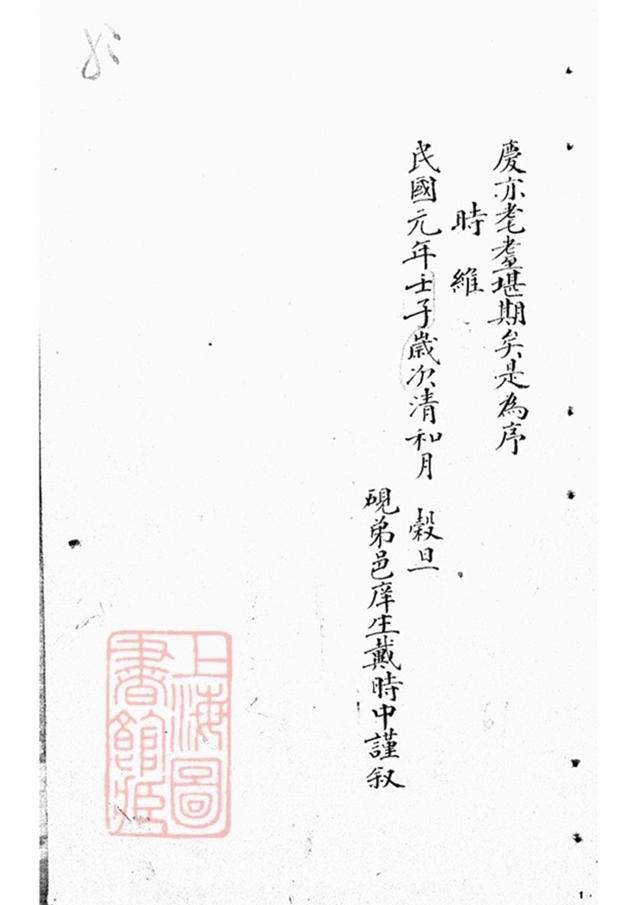 慶亦耄耋堪期矣是為序
時維
民國元年壬子歲次清和月　穀旦
硯弟邑庠生戴時中謹叙
上海圖
書館藏